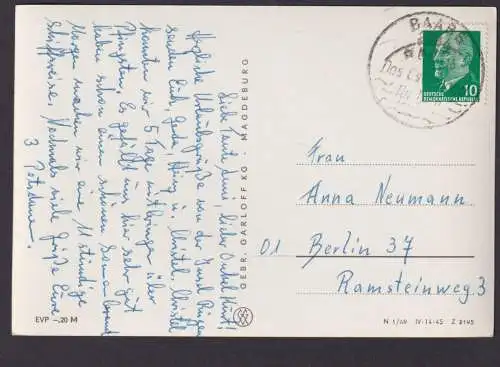 Liebe Tante Anni, lieber Onkel Kurt!
Herzliche Urlaubsgrüße von der Insel Rügen
senden Euch, Gerda, Heinz u. Christel. Christel
konnten wir 5 Tage mitbringen über
Pfingsten. Es gefällt uns hier sehr gut
haben schon einen schönen Sonnenbrand
Morgen machen wir eine 11 stündige
Schiffsreise. Nochmals viele Grüße Eure
3 Potsdamer.
EVP –,20 M
GEBR. GARLOFF KG · MAGDEBURG
BAABE
Das
DEUTSCHE
DEMOKRATISCHE REPUBLIK
10
Frau
Anna Neumann
01 Berlin 37
Ramsteinweg 3
N 1/69 IV-14-45 Z 8195